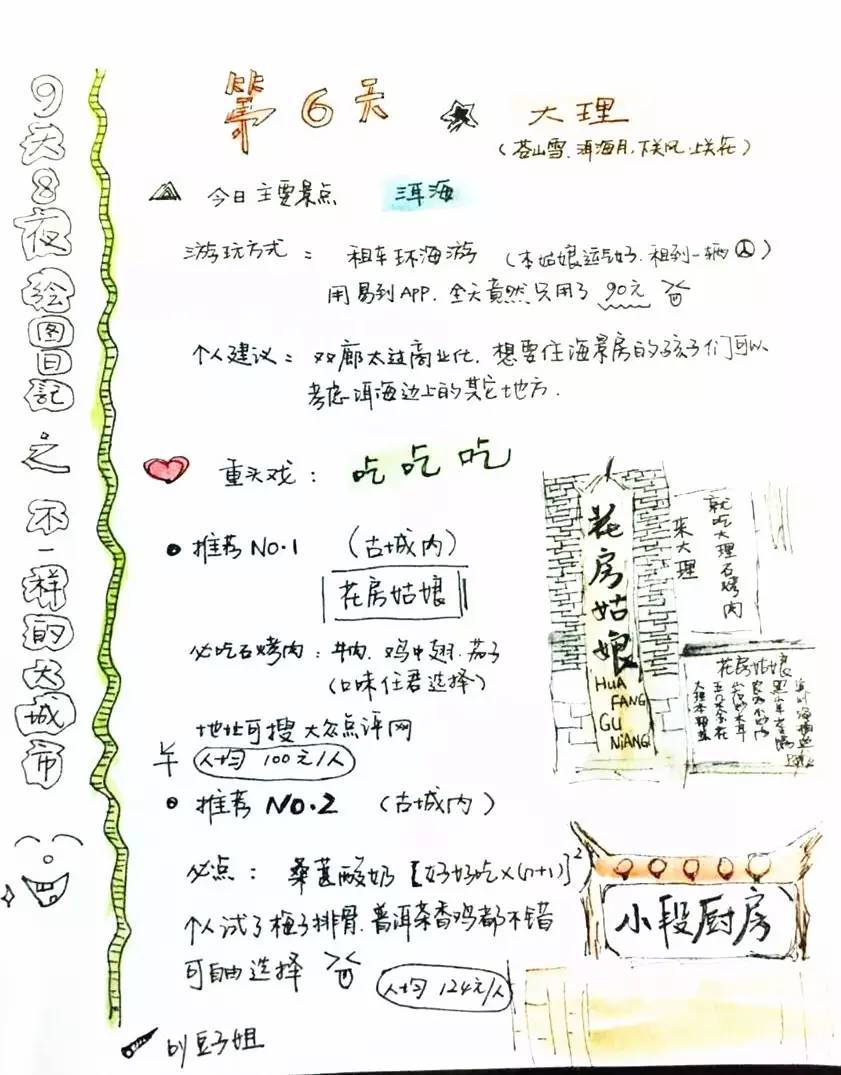 9天8夜绘图日記之不一样的大城市
第6天 大理
(苍山雪.洱海月.下关风.上关花)
今日主要景点 洱海
游玩方式: 租车环海游 (本姑娘运气好.租到一辆
用易到APP.全天竟然只用了90元
个人建议: 双廊太过商业化.想要住海景房的孩子们可以
考虑洱海边上的其它地方.
重头戏: 吃吃吃
推荐NO.1 (古城内)
花房姑娘
必吃石烤肉: 牛肉.鸡中翅.茄子
(口味任君选择)
地址可搜大众点评网
人均100元/人
推荐NO.2 (古城内)
必点: 桑葚酸奶[好好吃×(n+1)]²
个人试了梅子排骨.普洱茶香鸡都不错
可自由选择
人均124元/人
by豆子姐
花房姑娘
HUA
FANG
GU
NIANG
来大理
就吃大理石烤肉
花房姑娘
小段厨房